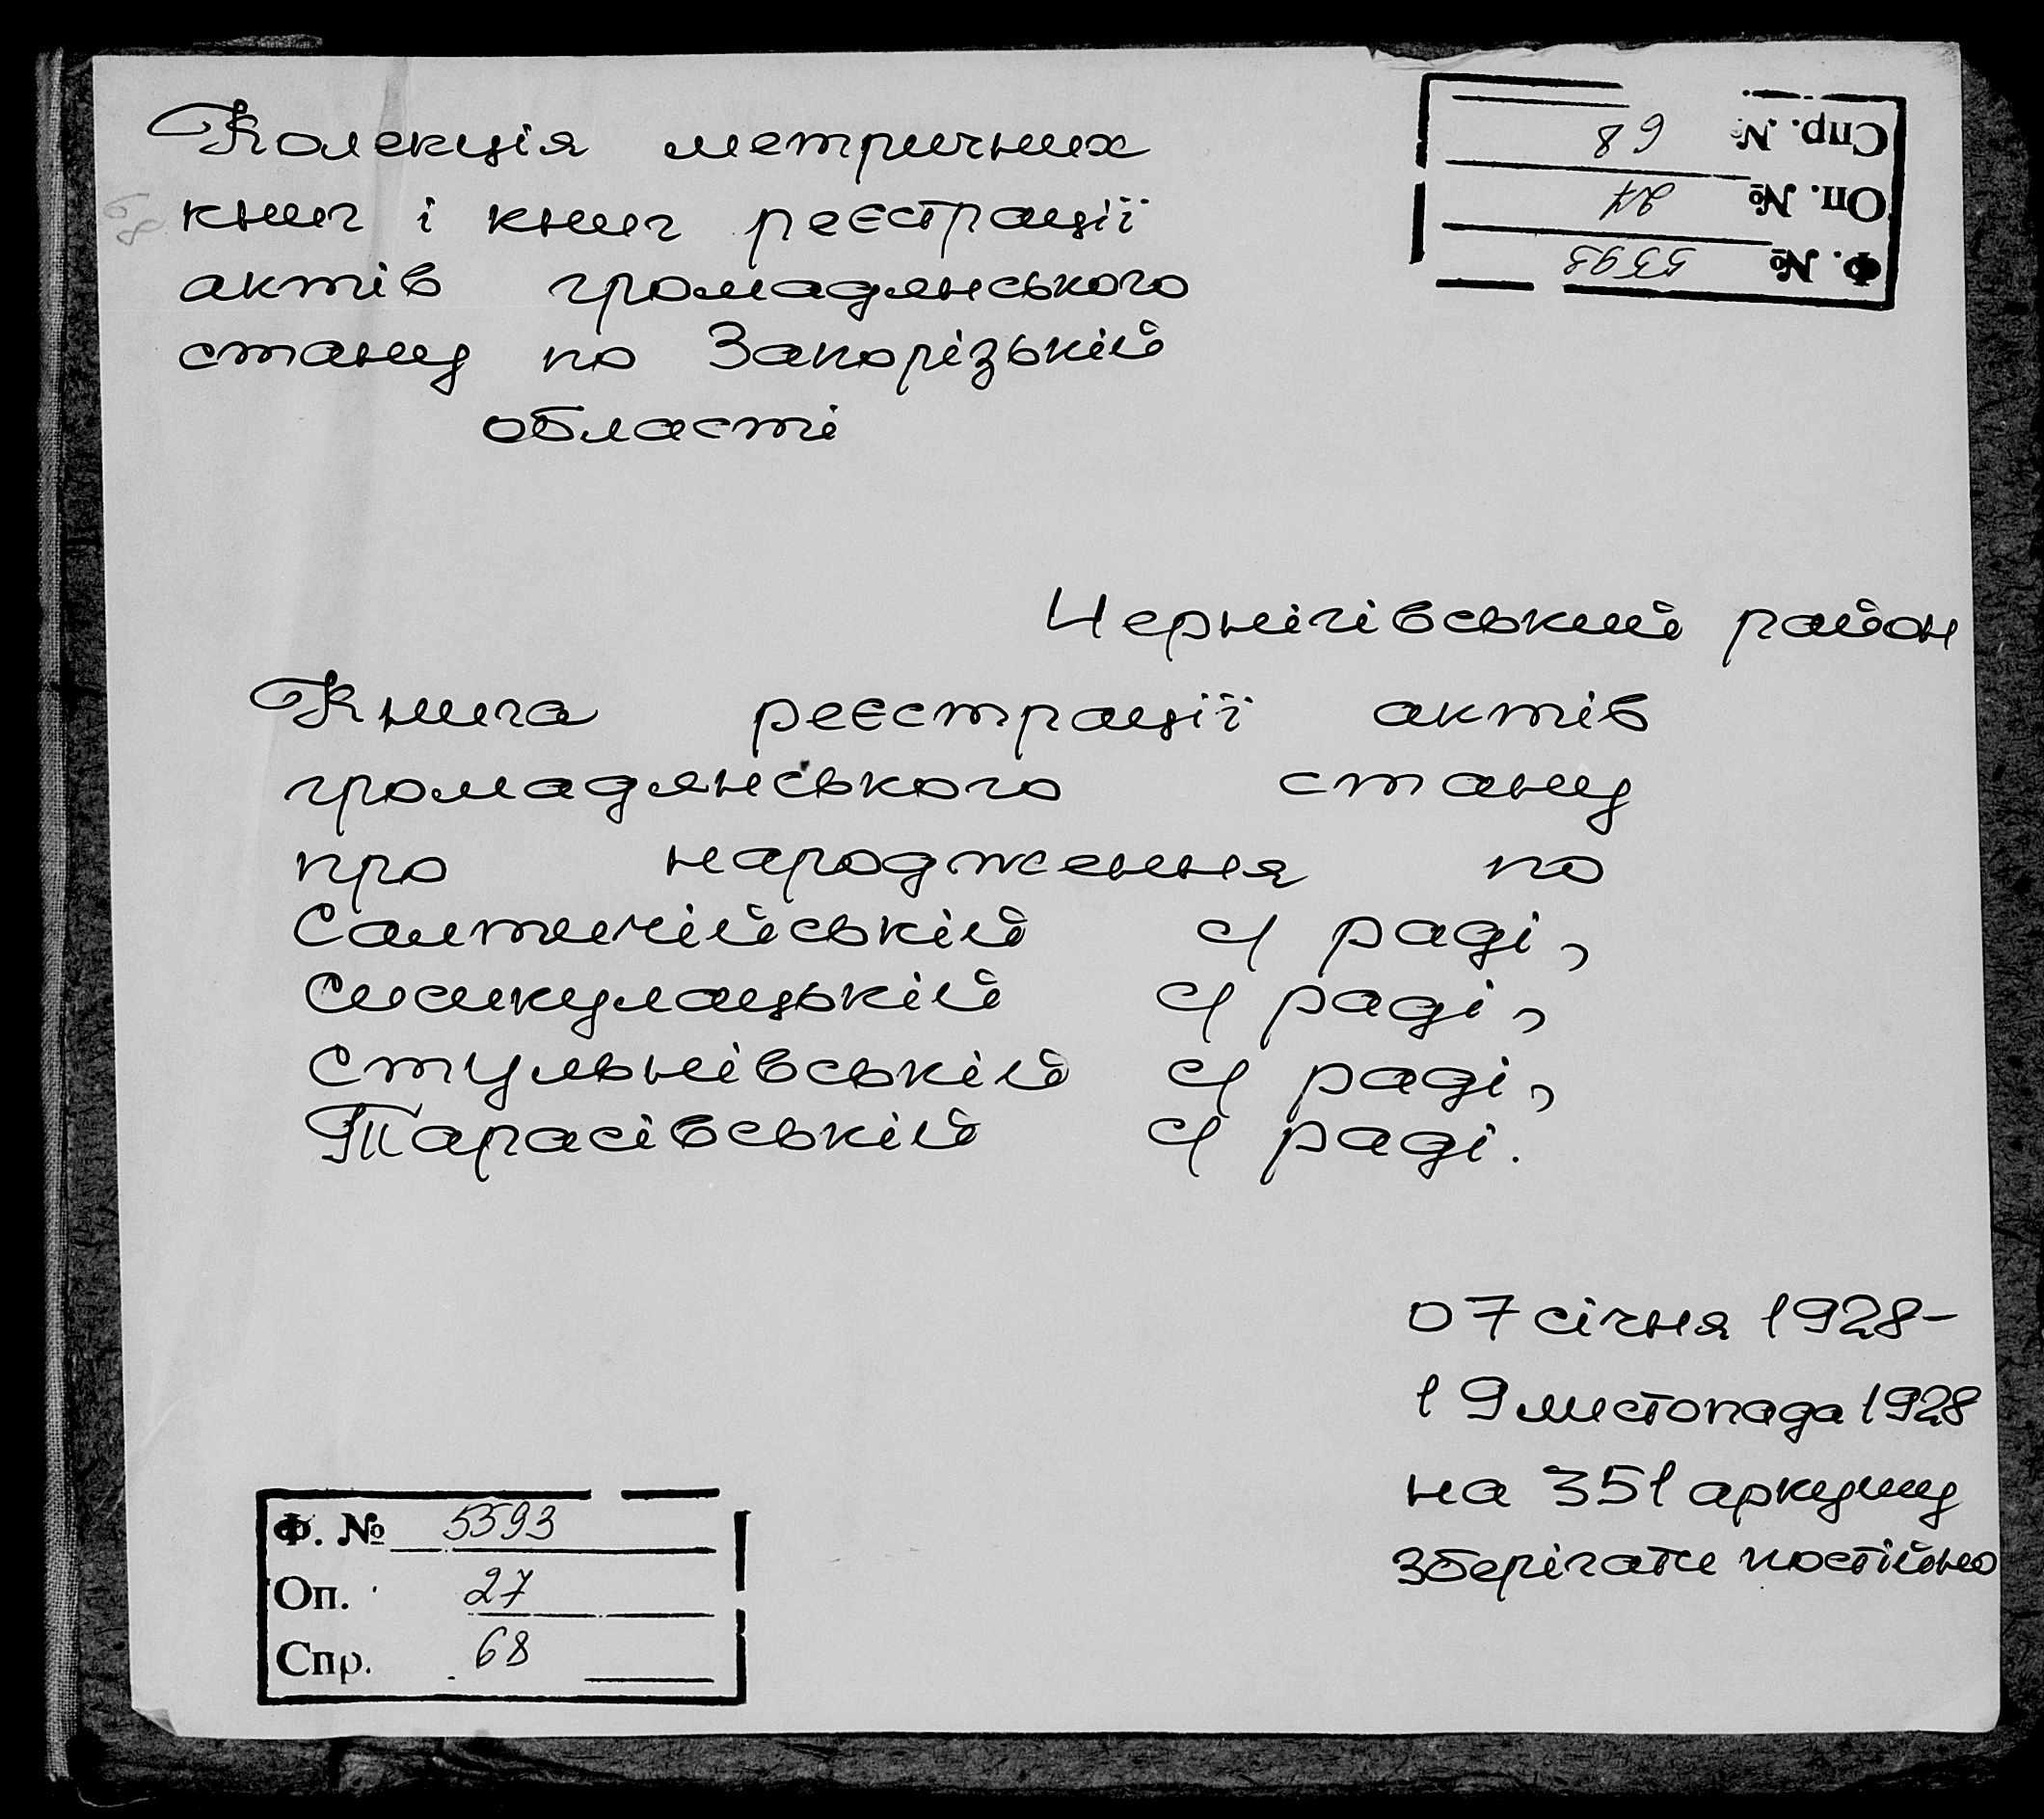 Колекція метричних
книг і книг реєстрації
актів громадянського
стану по Запорізькій
області
Спр. № 68
Оп. № 27
Ф. № 5593
Чернігівський район
Книга реєстрації актів
громадянського стану
про народження по
Салтичійській с/ раді,
Сисикулацькій с/ раді,
Стульнівській с/ раді,
Тарасівській с/ раді.
07 січня 1928-
19 листопада 1928
на 351 аркушу
зберігати постійно
Ф. № 5593
Оп. 27
Спр. 68